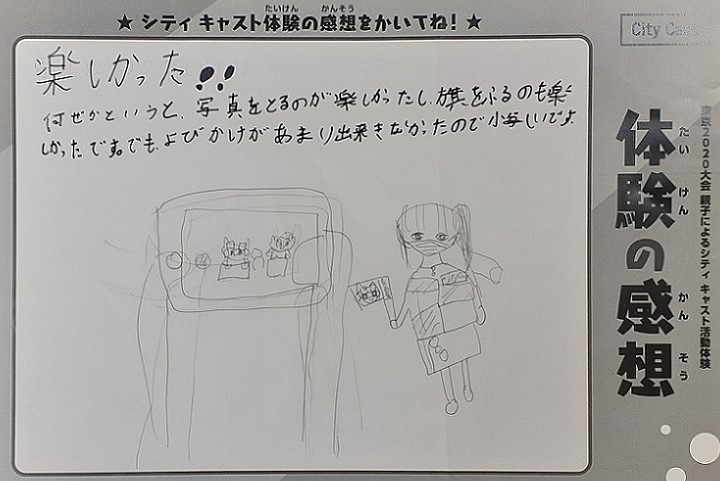 ★ シティ キャスト体験の感想をかいてね! ★
たいけん かんそう
楽しかった!!
何ぜかというと、写真をとるのが楽しかったし、旗をふるのも楽
しかったです。でも、よびかけがあまり出来きなかったので小毎しいです。
City Cast
体験の感想
たい けん かん そう
東京2020大会 親子によるシティ キャスト活動体験